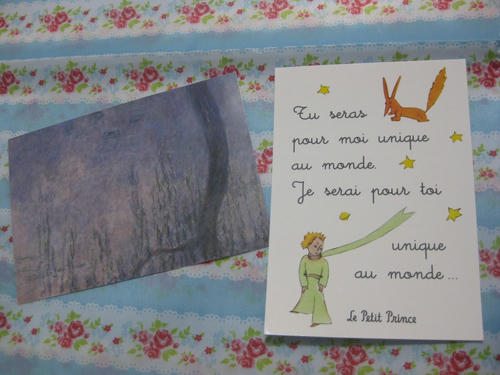 Tu seras
pour moi unique
au monde.
Je serai pour toi
unique
au monde...
Le Petit Prince